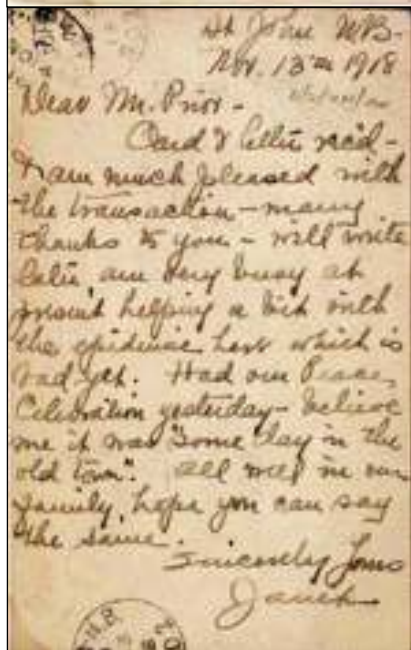 St John NB-
Nov. 13th 1918
Dear Mr. Prior -
Card & letter rec'd -
I am much pleased with
the transaction - many
thanks to you - will write
later, am very busy at
present helping a bit with
the epidemic here which is
bad yet. Had our Peace
Celebration yesterday - believe
me it was "some day in the
old town". All well in our
family, hope you can say
the same.
Sincerely Yours